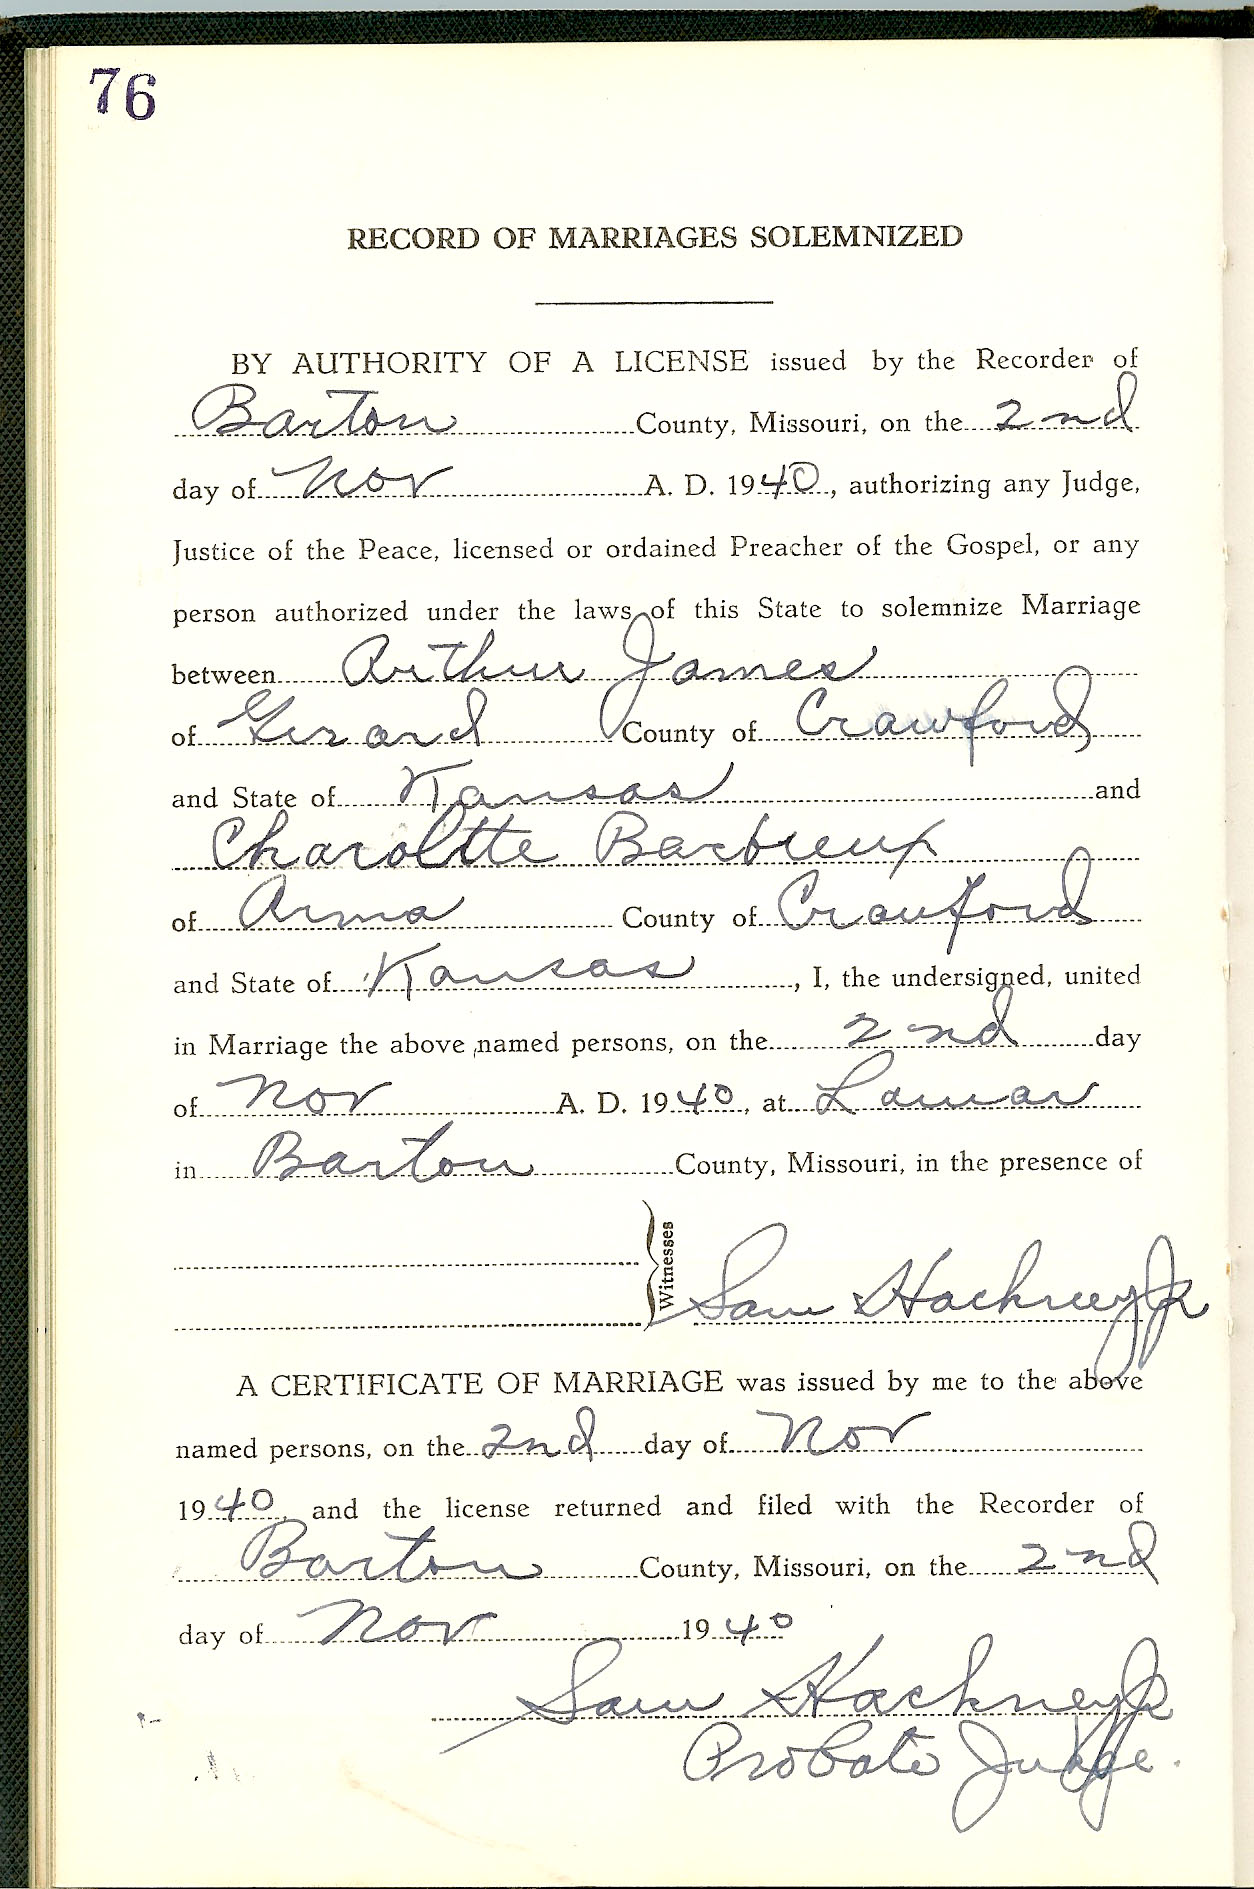 76
RECORD OF MARRIAGES SOLEMNIZED
BY AUTHORITY OF A LICENSE issued by the Recorder of
Barton County, Missouri, on the 2nd
day of Nov A. D. 1940, authorizing any Judge,
Justice of the Peace, licensed or ordained Preacher of the Gospel, or any
person authorized under the laws of this State to solemnize Marriage
between Arthur James
of Girard County of Crawford
and State of Kansas and
Charoltte Barbieux
of Arma County of Crawford
and State of Kansas, I, the undersigned, united
in Marriage the above named persons, on the 2nd day
of Nov A. D. 1940, at Lamar
in Barton County, Missouri, in the presence of
Witnesses
Sam Hackney Jr
A CERTIFICATE OF MARRIAGE was issued by me to the above
named persons, on the 2nd day of Nov
1940, and the license returned and filed with the Recorder of
Barton County, Missouri, on the 2nd
day of Nov 1940
Sam Hackney Jr
Probate Judge.